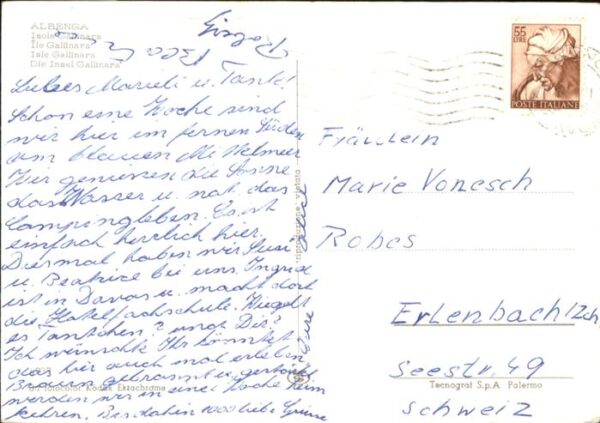 ALBENGA
Isola Gallinara
Île Gallinara
Isle Gallinara
Die Insel Gallinara
Liebes Marieli u. Tante!
Schon eine Woche sind
wir hier im fernen Süden
am blauen Mittelmeer
Wir geniessen die Sonne
das Wasser u. nat. das
Campingleben. Es ist
einfach herrlich hier.
Diesmal haben wir Susi
u. Beatrice bei uns. Ingrid
ist in Davos u. macht dort
die Hotelfachschule. Wie geht
es Tantchen? und Dir?
Ich wünschte Ihr könntet
das hier auch mal erleben
Braun gebrannt u. gestärkt
werden wir in einer Woche heim
kehren. Bis dahin 1000 liebe Grüsse
55
LIRE
POSTE ITALIANE
Fräulein
Marie Vonesch
Robes
Erlenbach/Zch
Seestr. 49
Schweiz
riproduzione vietata
Kodak Ektachrome
Tecnograf S.p.A. Palermo